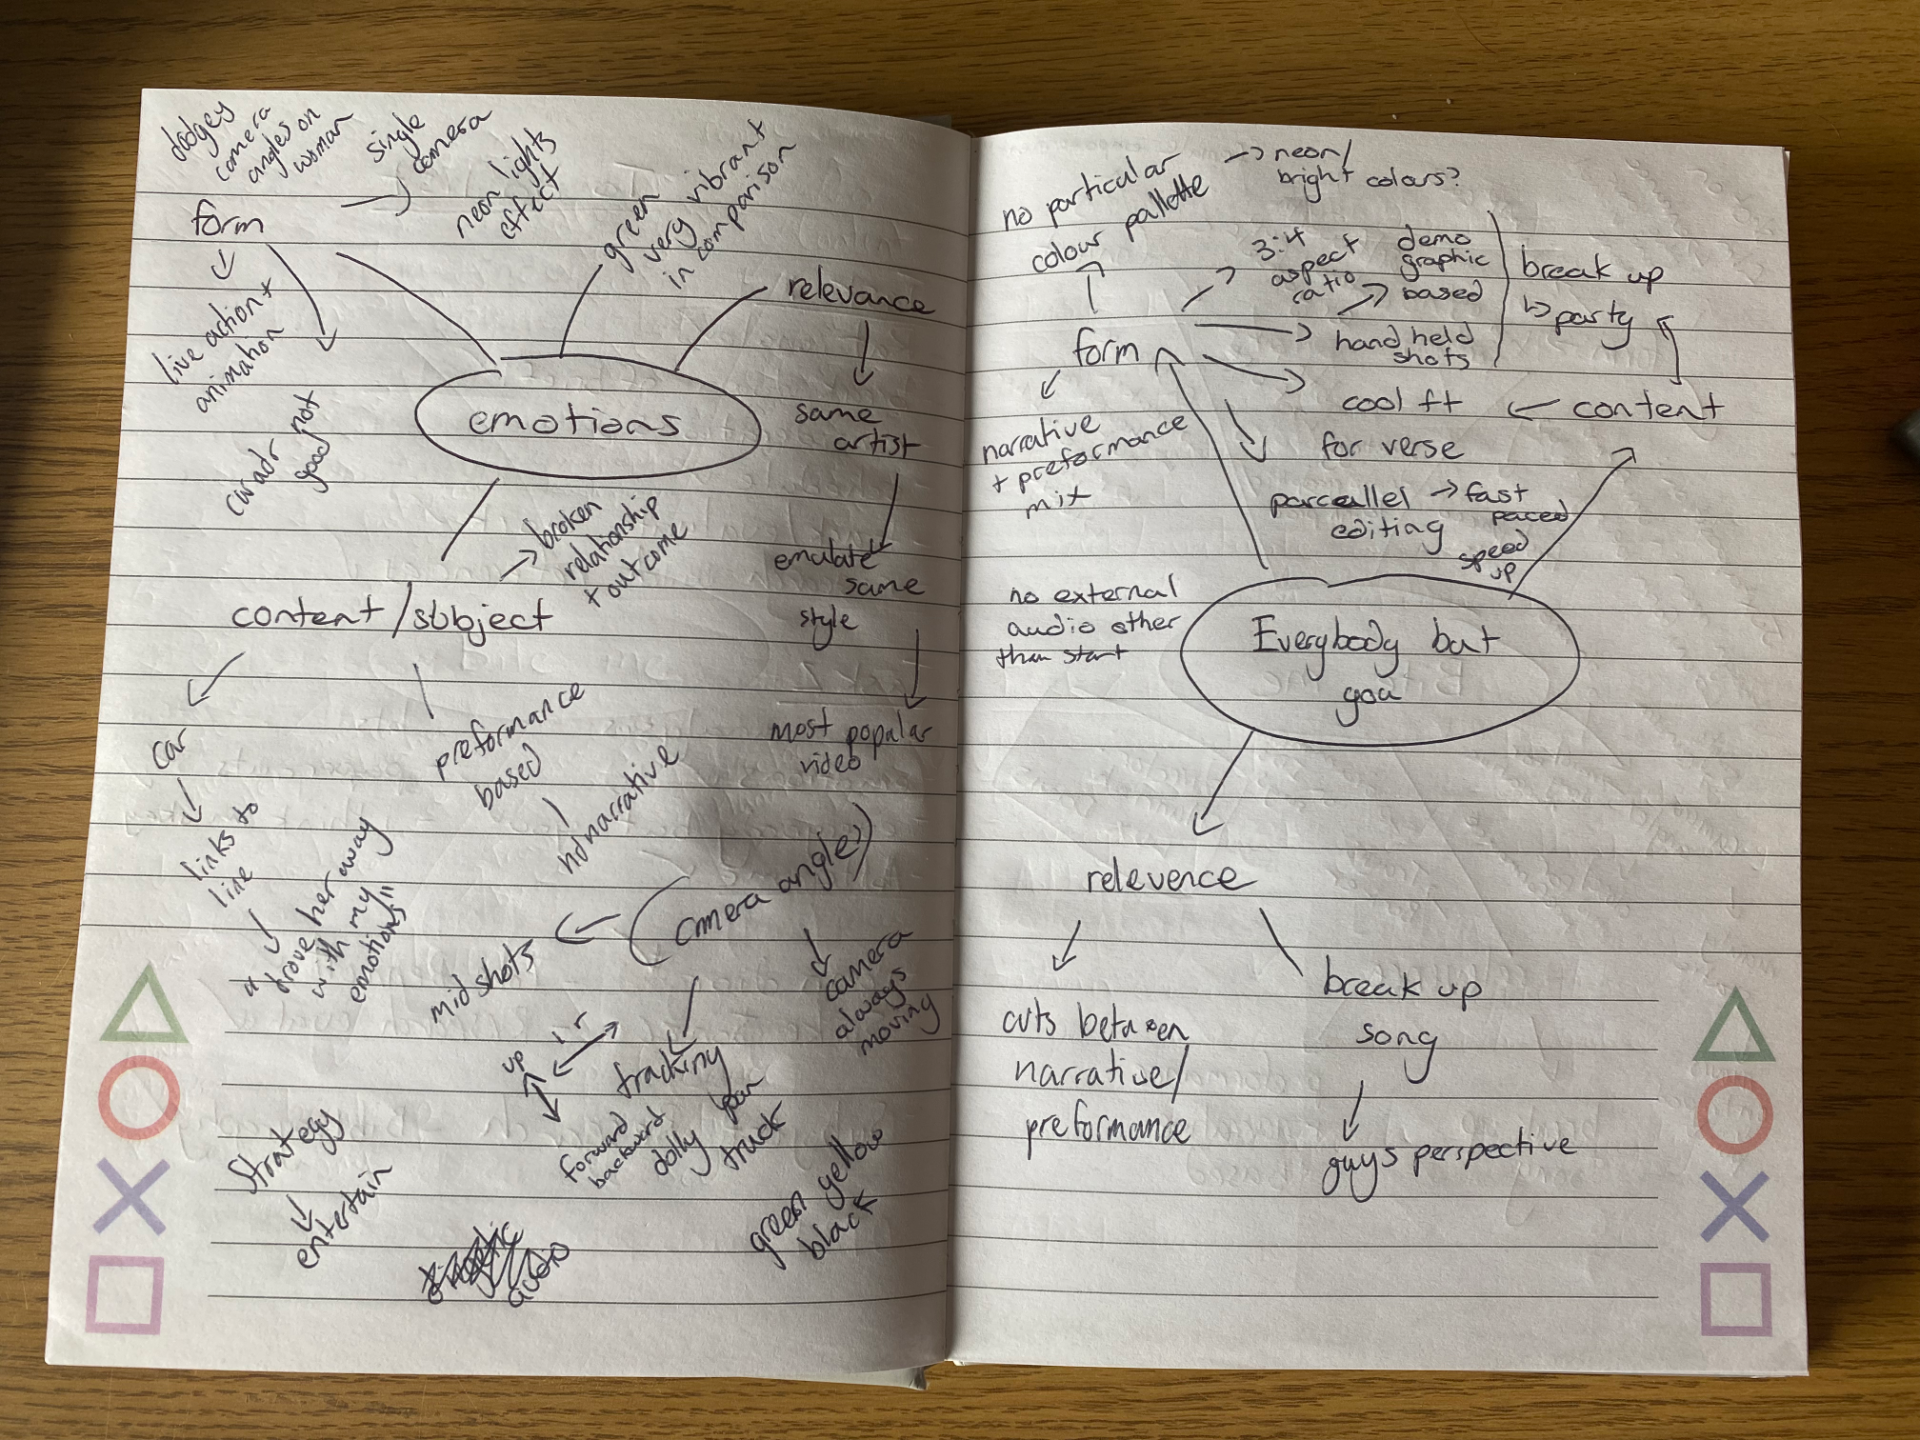 dodgey
camera
angles on
woman
single
camera
neon lights
effect
green
very vibrant
in comparison
form
relevance
live action +
animation
not
good
emotions
same
artist
broken
relationship
+ outcome
emulate
same
style
content/subject
car
preformance
based
no narrative
most popular
video
links to
line
"drove her away
with my
emotions"
camera angles
mid shots
camera
always
moving
up
l r
tracking
forward
backward
dolly
pan
truck
Strategy
entertain
audio
green yellow
black
no particular
colour pallette
→ neon/
bright colours?
3:4
aspect
ratio
demo
graphic
based
break up
↳ party
form
hand held
shots
cool ft
for verse
content
narrative
+ preformance
mix
parcallel
editing
→ fast
paced
speed
up
no external
audio other
than start
Everybody but
you
relevence
cuts between
narrative/
preformance
break up
song
guys perspective